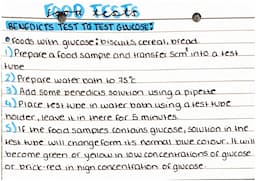 FOOD TESTS
BENEDICTS TEST TO TEST GLUCOSE:
• Foods with glucose: biscuits, cereal, bread
1) Prepare a food sample and transfer 5cm³ into a test
tube
2) Prepare water bath to 75°C
3) Add some benedicts solution using a pipette
4) Place test tube in water bath using a test tube
holder, leave it in there for 5 minutes.
5) If the food samples contains glucose, solution in the
test tube will change form its normal blue colour. It will
become green or yellow in low concentrations of glucose
or brick-red in high concentration of glucose